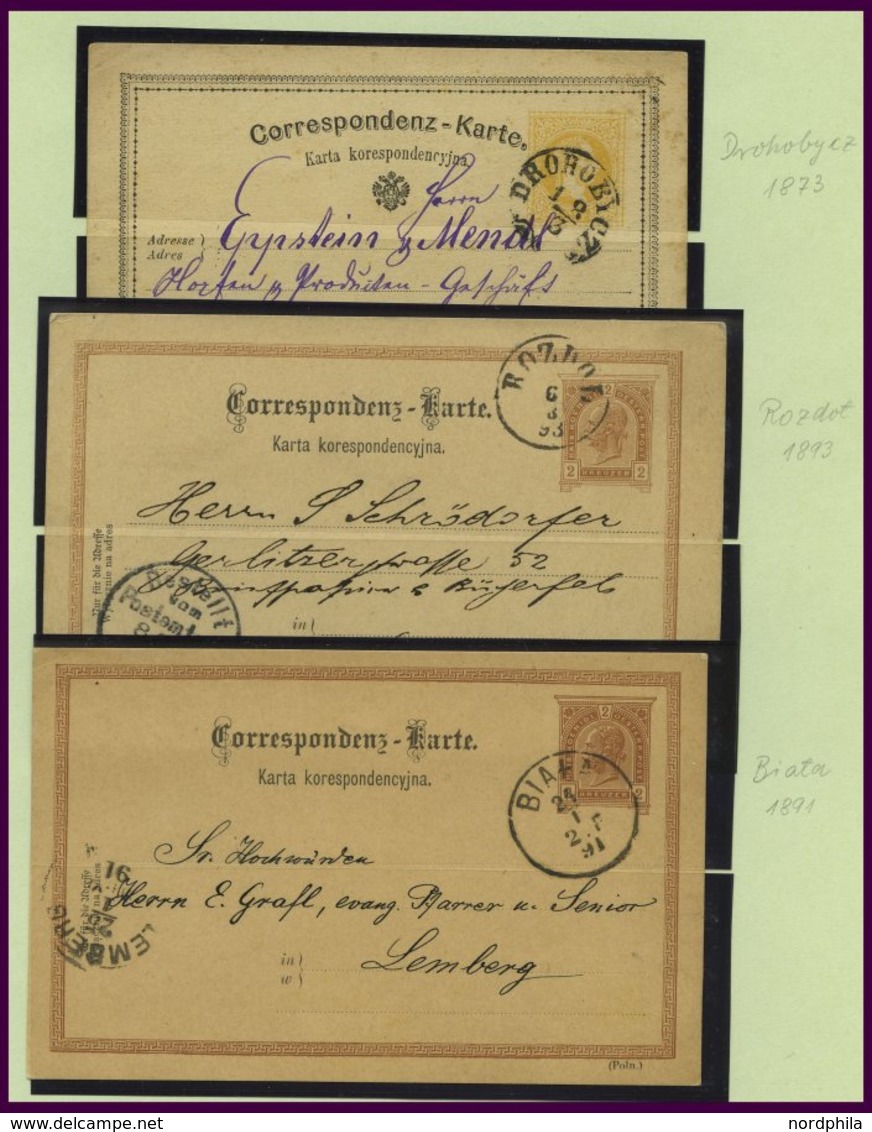 Correspondenz-Karte.
Karta korespondencyjna
Herrn
Adresse
Adres
Eppstein & Mendl
Hopfen & Produkten-Geschäft
DROHOBICZ
Drohobycz
1873
Correspondenz-Karte.
Karta korespondencyjna.
ROZDOL
6
8
93
2
2 KREUZER 2
Herrn S Schrödorfer
Gerlitzerstrasse 52
Nur für die Adresse
Wyłącznie na adres
Bestellt
vom
Postamt
8
in
Rozdot
1893
Correspondenz-Karte.
Karta korespondencyjna.
BIAŁA
91
2
2 KREUZER 2
Sr. Hochwürden
Herrn E. Grafl, evang. Pfarrer u. Senior
in
w
Lemberg
LEMBERG
91
(Poln.)
Biata
1891
nordphila